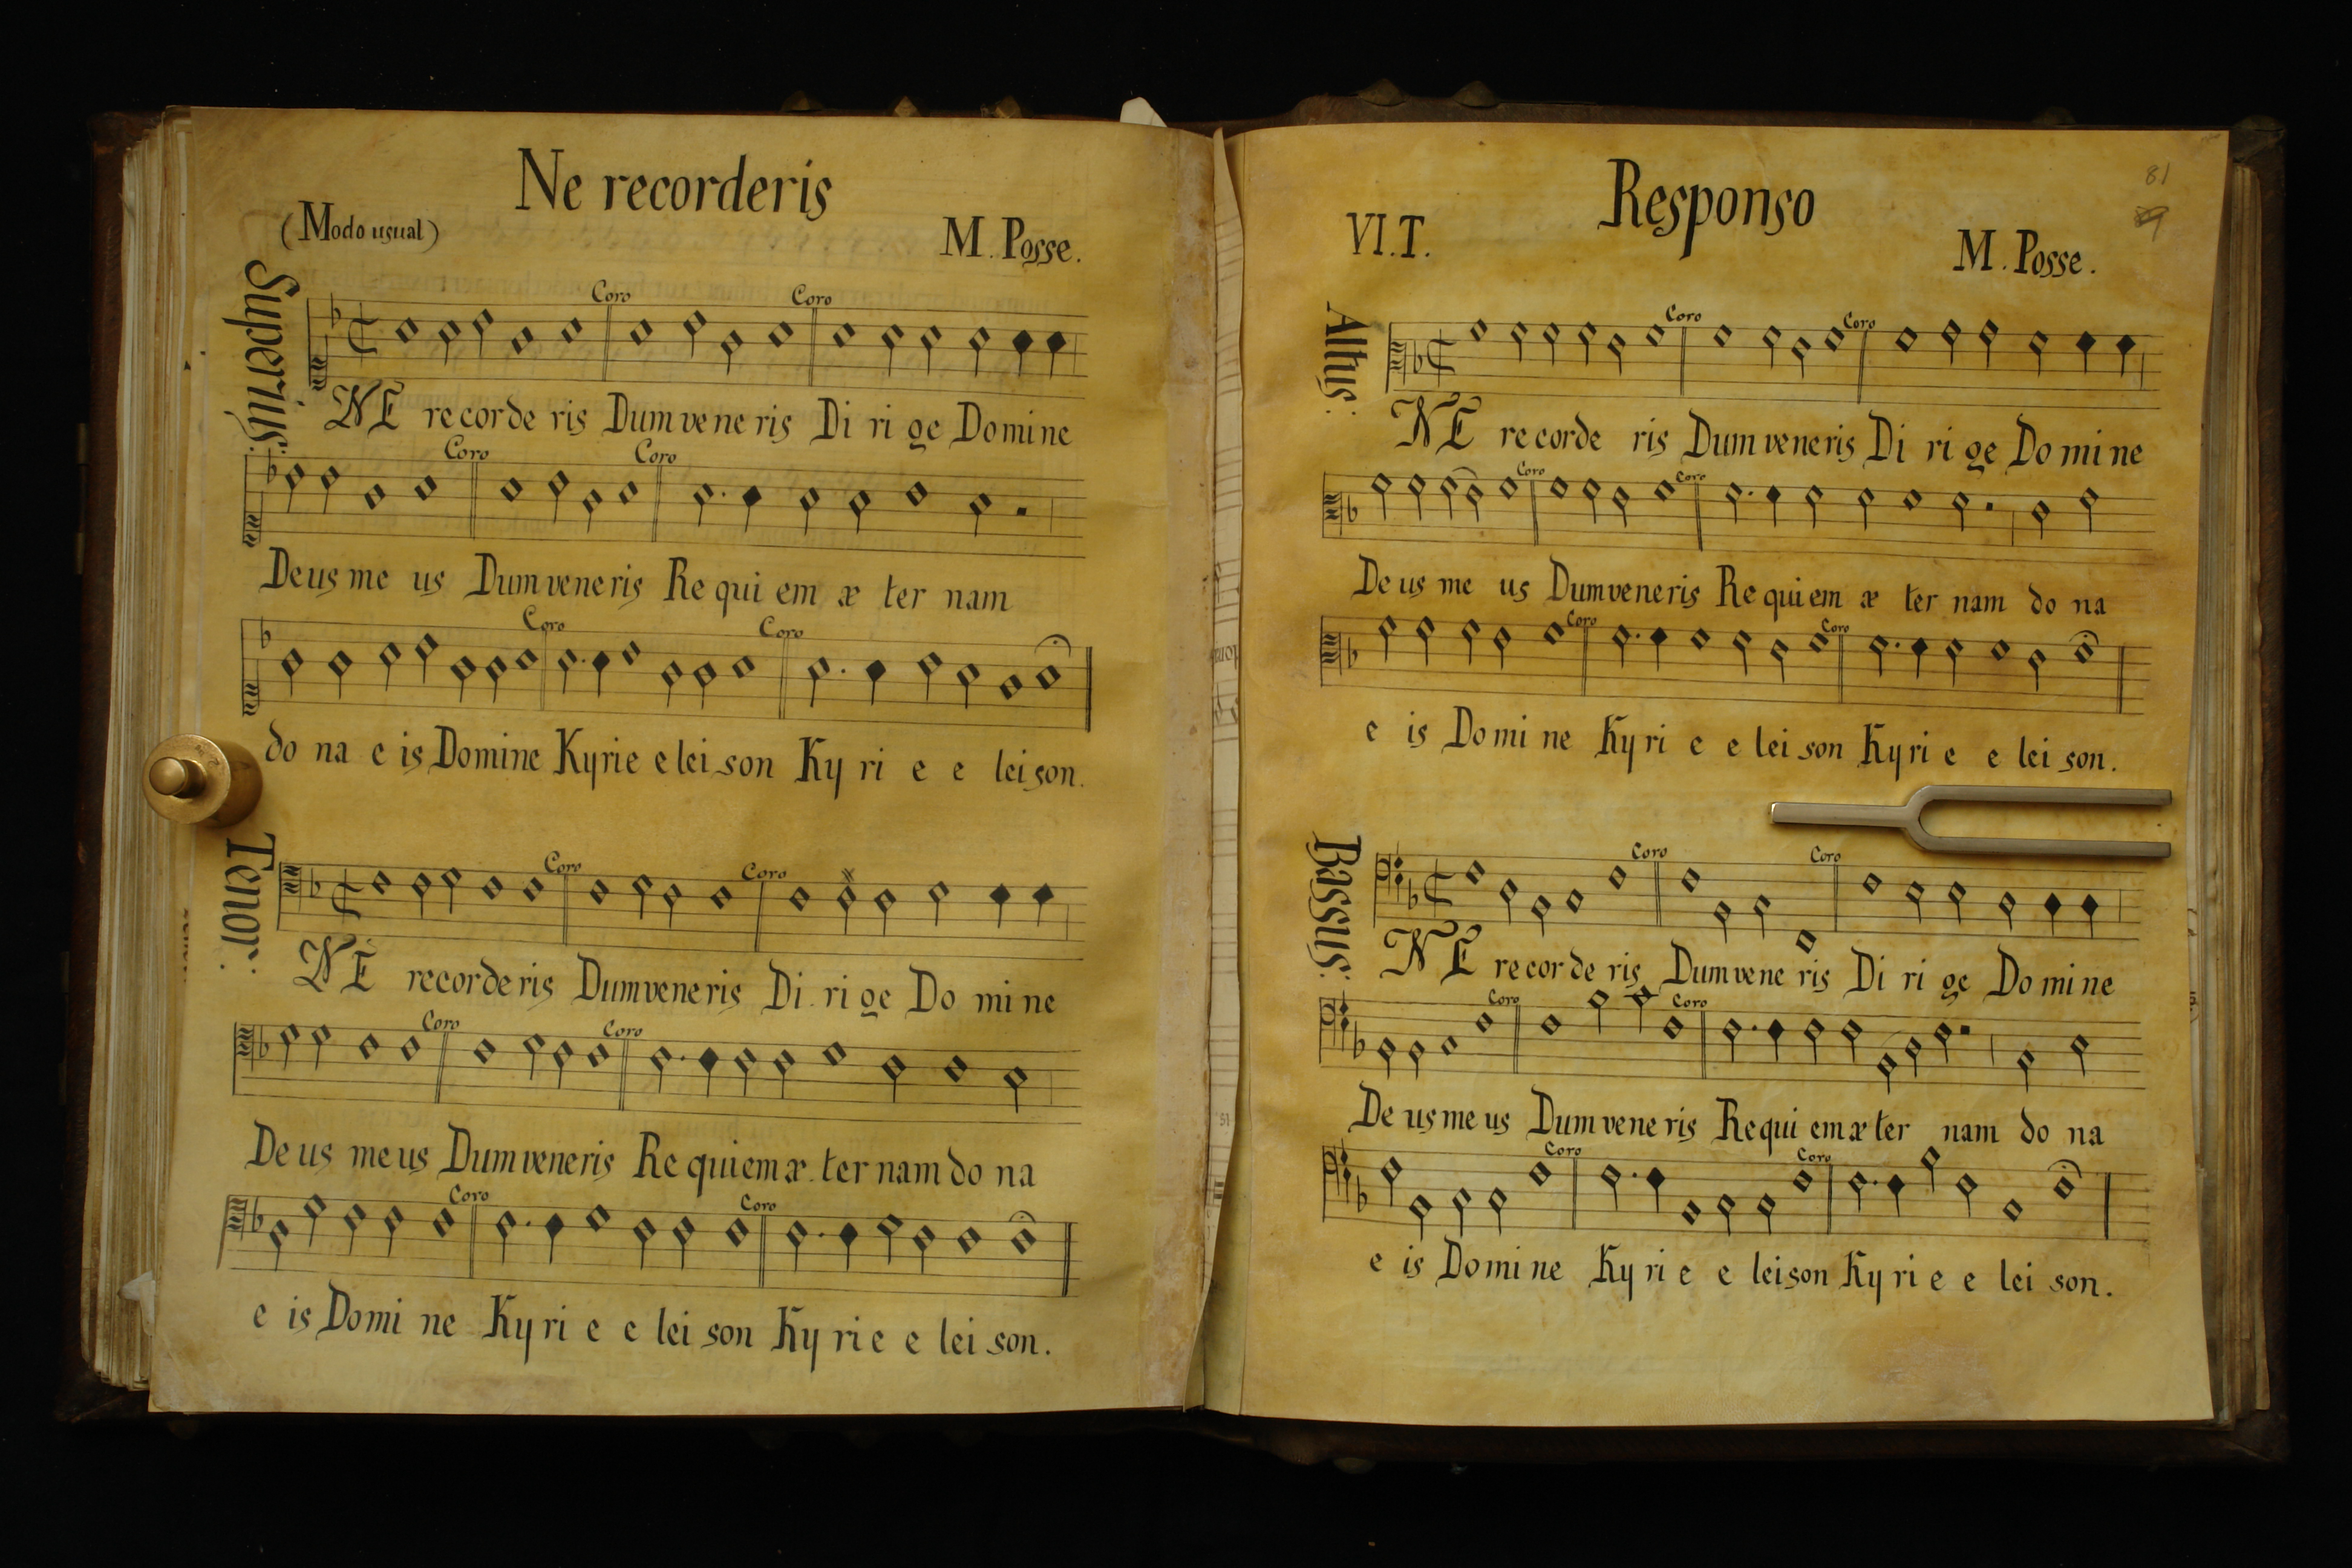 Ne recorderis
(Modo usual)
M. Posse.
Superius:
Coro Coro
NE recorde ris Dum vene ris Di ri ge Domine
Coro Coro
Deus me us Dum veneris Re qui em æ ter nam
Coro Coro
do na e is Domine Kyrie e lei son Ky ri e e lei son.
Tenor:
Coro Coro
NE recorderis Dum veneris Di. ri ge Do mi ne
Coro Coro
De us me us Dum veneris Re quiem æ. ter nam do na
Coro Coro
e is Domi ne Ky ri e e lei son Ky ri e e lei son.
81
Responso
VI. T.
M. Posse.
Altus:
Coro Coro
NE re corde ris Dum veneris Di ri ge Do mi ne
Coro Coro
De us me us Dum veneris Re qui em æ ter nam do na
Coro Coro
e is Do mi ne Ky ri e e lei son Ky ri e e lei son.
Bassus:
Coro Coro
NE recor de ris Dum vene ris Di ri ge Do mi ne
Coro Coro
De us me us Dum vene ris Re qui em æ ter nam do na
Coro Coro
e is Do mi ne Ky ri e e leison Ky ri e e lei son.